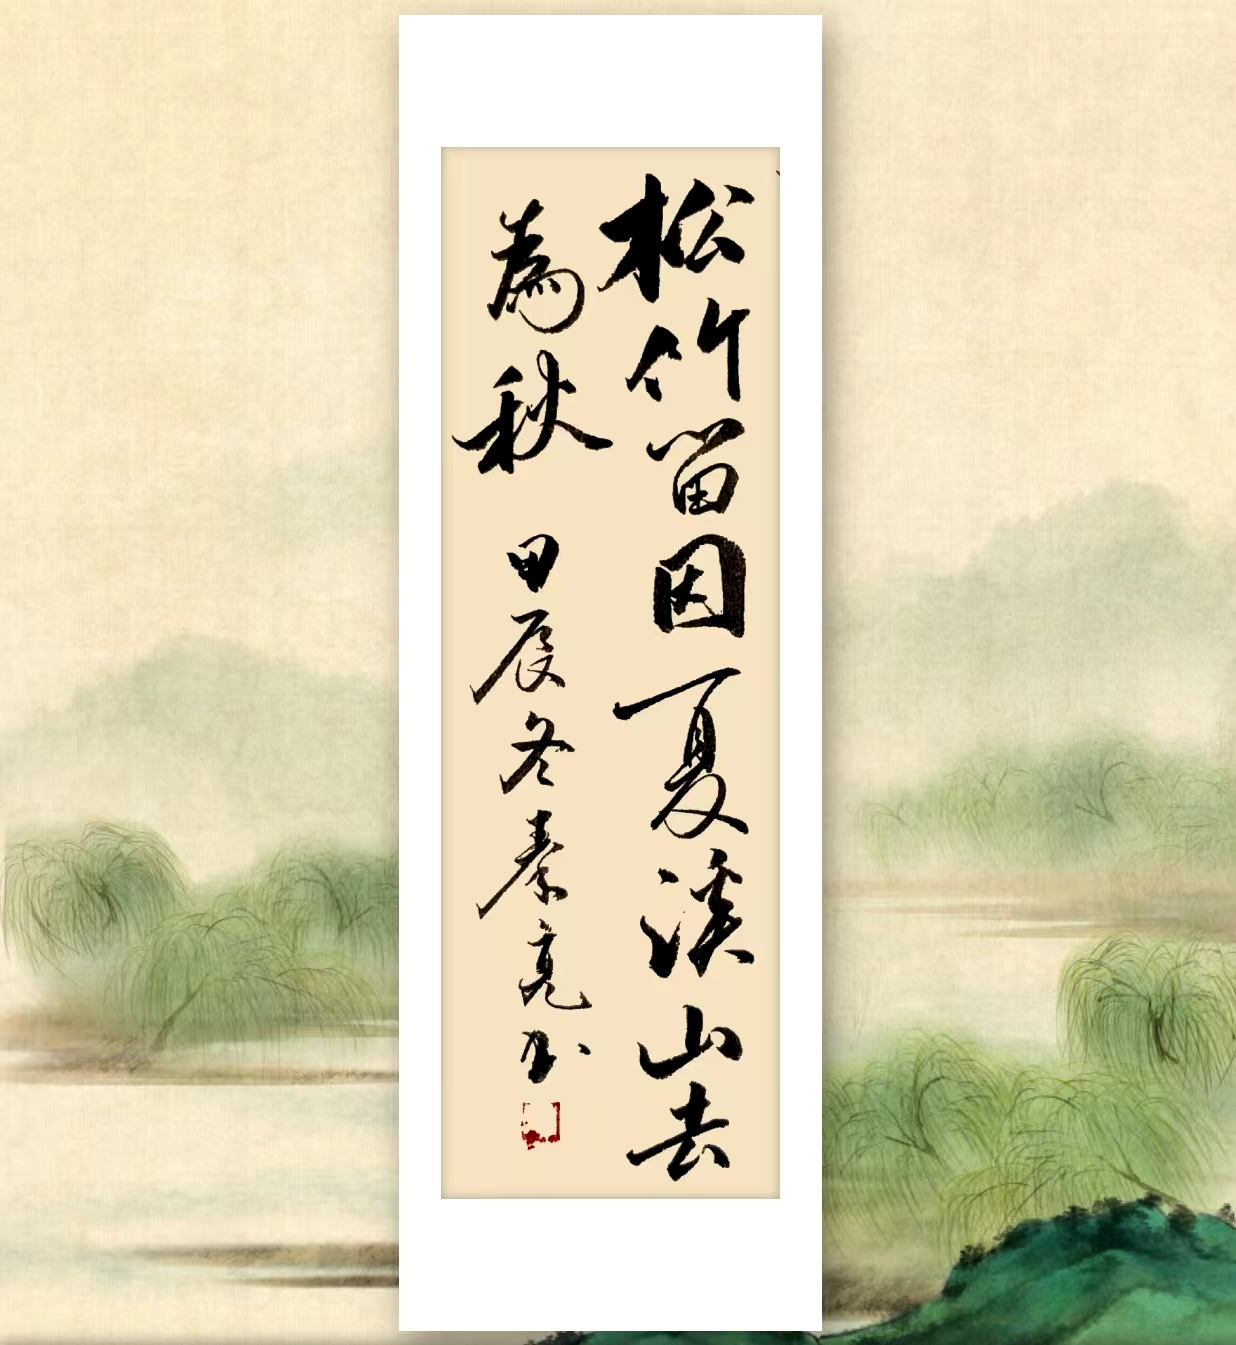 松竹留因夏溪山去
為秋 甲辰冬秦亮书